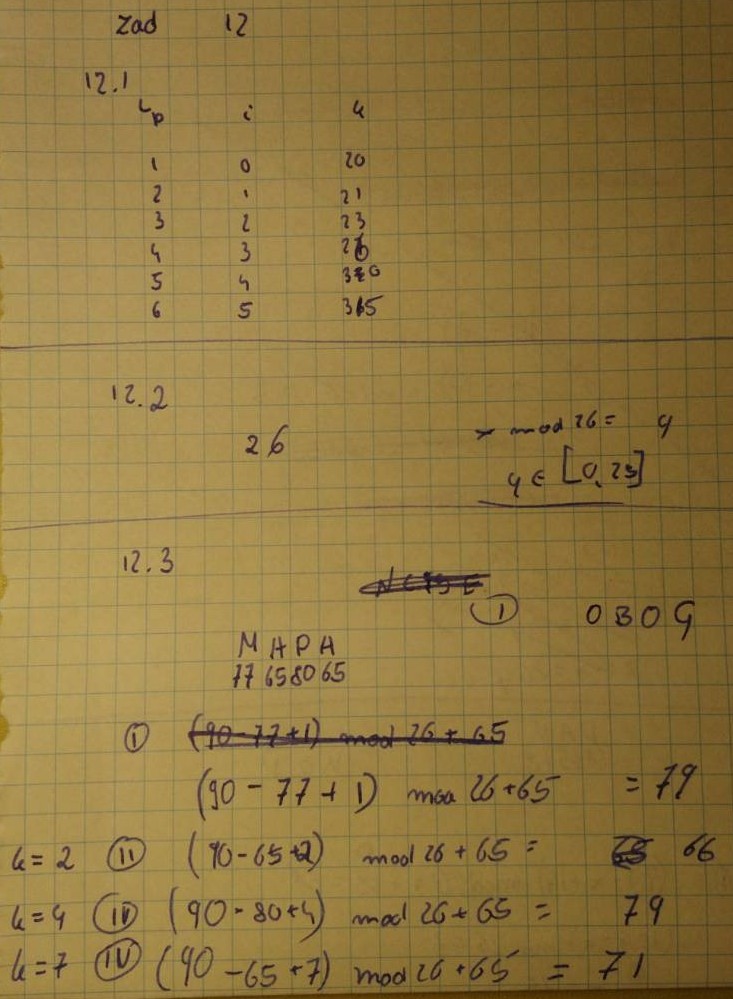 Zad 12
12.1
Lp i k
1 0 20
2 1 21
3 2 23
4 3 26
5 4 30
6 5 35
12.2
26
x mod 26 = y
y ∈ [0, 25]
12.3
NCISE
① OBOG
MAPA
77 65 80 65
① (90-77+1) mod 26 + 65
(90 - 77 + 1) mod 26 + 65 = 79
k=2 Ⅱ (90-65+2) mod 26 + 65 = 66
k=4 Ⅲ (90-80+4) mod 26 + 65 = 79
k=7 Ⅳ (90-65+7) mod 26 + 65 = 71